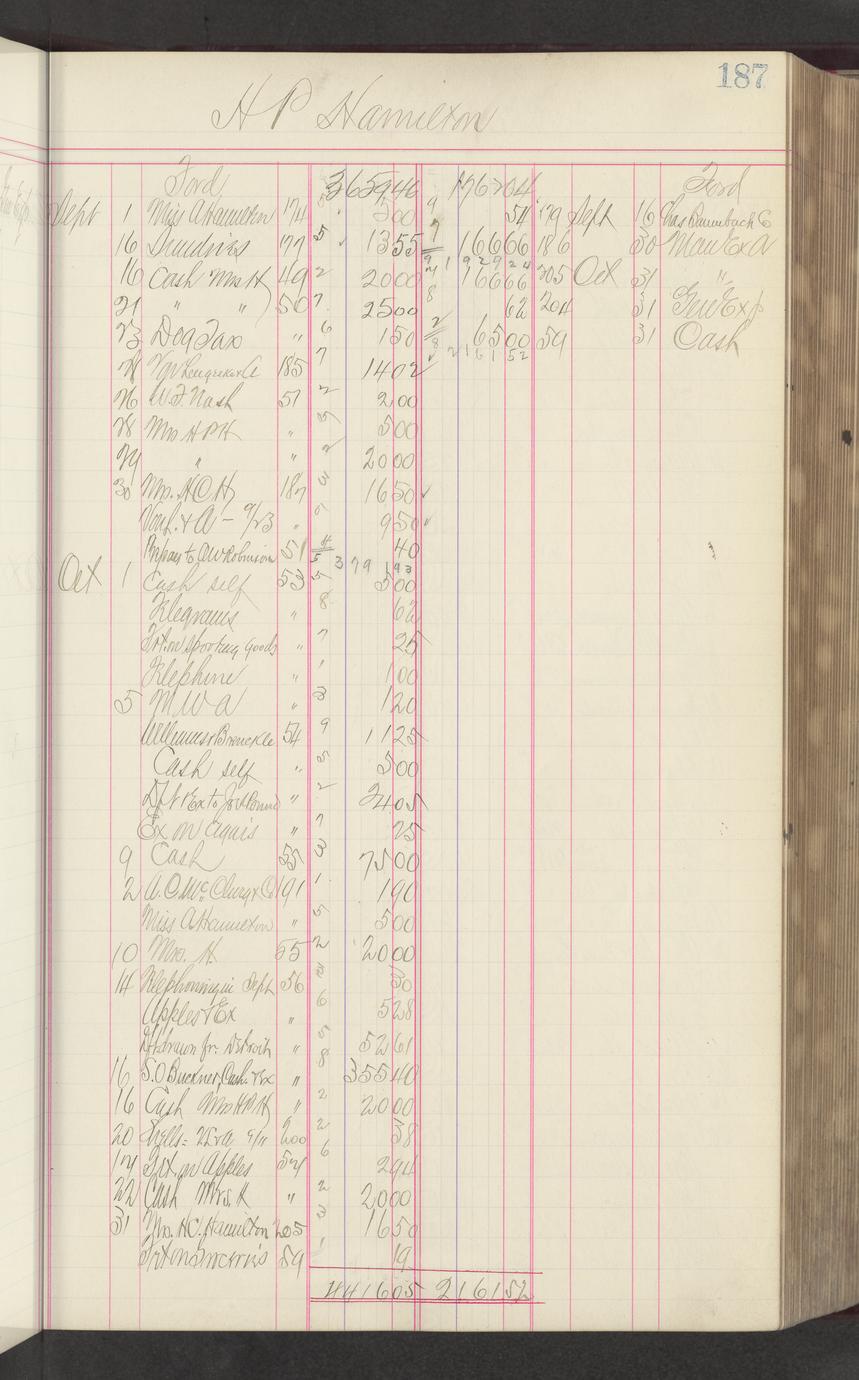 187
H P Hamilton
Ford 365946 176204 Ford
Sept 1 Miss A Hamilton 174 5 500 9 54 179 Sept 16 Chas Baumbach Co
16 Sundries 177 5 1355 7 16666 186 30 Man Ex A
192924
16 Cash Mrs H 49 2 2000 16666 205 Oct 31 "
21 " " 50 7 2500 8 62 204 31 Gen Exp
23 Dog Tax " 6 150 2 6500 59 31 Cash
216152
185 7 1402
26 W.F. Nash 51 2 200
28 Mrs H P H " 5 500
29 " " 2 2000
30 Mrs. H C H 187 3 1650
& A - 9/23 " 950
Prepay to A W Robinson 51 4 40
379193
Oct 1 Cash self 53 5 500
Telegrams " 8 62
Frt. on Sporting Goods " 7 25
Telephone " 1 100
5 M W A " 3 120
54 9 1125
Cash self " 5 500
Dft & Ex to " 2 2405
Ex on " 7 25
9 Cash 55 3 7500
2 A. C. McClurg & Co 191 1 190
Miss A Hamilton " 5 500
10 Mrs. H. 55 2 2000
14 Telephoning in Sept 56 3 30
Apples & Ex " 6 528
Dft drawn fr. Detroit " 5 5261
16 S.O Buckner, Cash. & Ex " 8 35540
16 Cash Mrs H P H " 2 2000
20 Shells = 200 2 38
17 Frt. on Apples 57 6 294
22 Cash Mrs. H " 2 2000
31 Mrs. H C. Hamilton 205 3 1650
Frt on 59 1 19
441605 216152